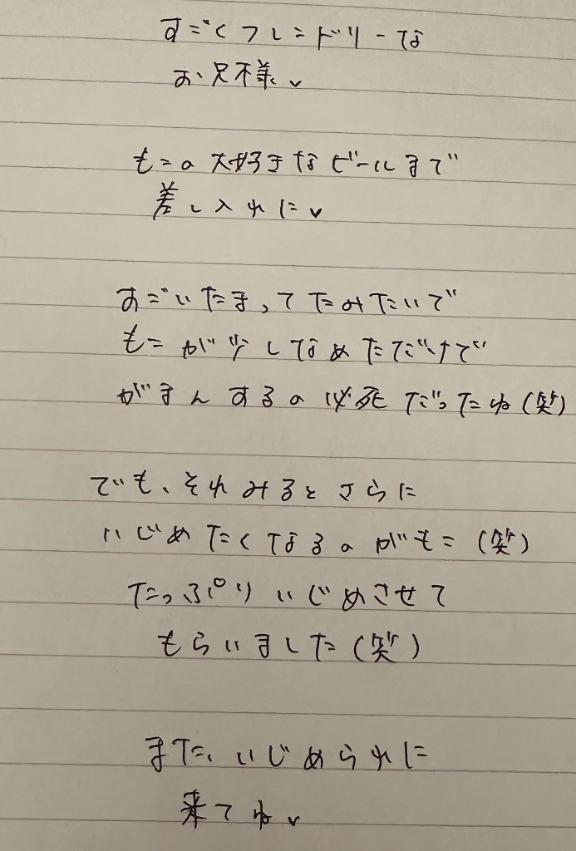 すごくフレンドリーな
お兄様✓
もこの大好きなビールまで
差し入れに✓
すごいたまってたみたいで
もこが少しなめただけで
がまんするの必死だったね(笑)
でも、それみるとさらに
いじめたくなるのがもこ(笑)
たっぷりいじめさせて
もらいました(笑)
また、いじめられに
来てね✓